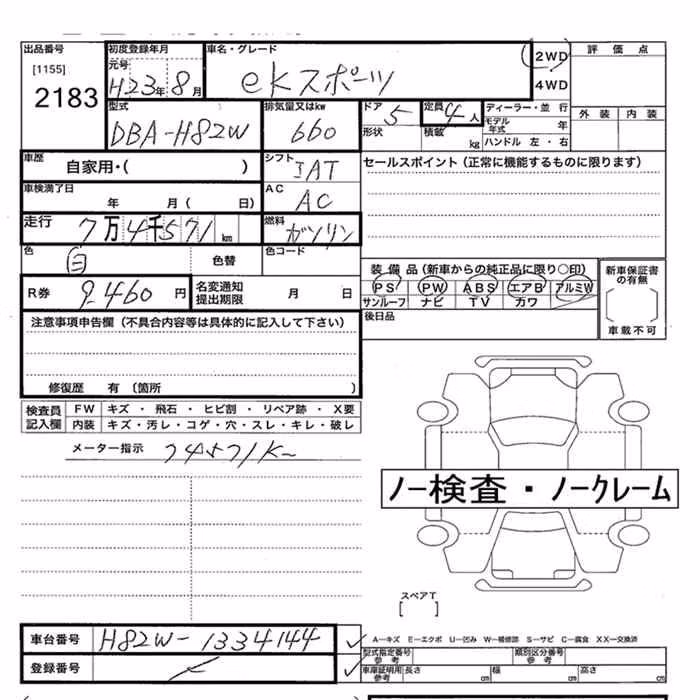 出品番号 初度登録年月 車名・グレード 2WD 評価点
[1155] 元号 ekスポーツ 4WD
2183 H23年 8月 外装 内装
型式 排気量又はkw ドア 5 定員 4人 ディーラー・並行
DBA-H82W 660 形状 積載 kg モデル年式 年
ハンドル 左・右
車歴 自家用・( ) シフト IAT セールスポイント(正常に機能するものに限ります)
車検満了日 年 月( 日) AC AC
走行 7万4千571km 燃料 ガソリン
色 白 色替 色コード
装備品(新車からの純正品に限り○印) 新車保証書の有無
R券 9,460円 名変通知提出期限 月 日 PS PW ABS エアB アルミW
サンルーフ ナビ TV カワ [ ]
注意事項申告欄(不具合内容等は具体的に記入して下さい) 後日品 車載不可
修復歴 有(箇所
検査員記入欄 FW キズ・飛石・ヒビ割・リペア跡・X要
内装 キズ・汚レ・コゲ・穴・スレ・キレ・破レ
メーター指示 74571K
ノー検査・ノークレーム
スペアT
[ ]
車台番号 H82W-1334144 A-キズ E-エクボ U-凹み W-補修跡 S-サビ C-腐食 XX-交換済
登録番号 型式指定番号 参考 類別区分番号 参考
車庫証明用参考 長さ cm 幅 cm 高さ cm